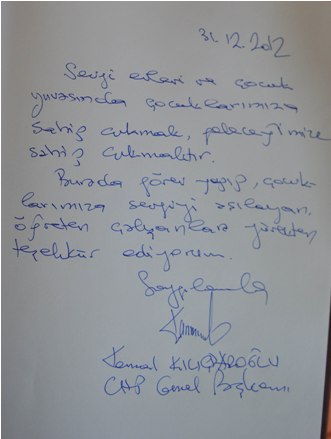 31.12.2012
Sevgi evleri ve çocuk
yuvasında çocuklarımıza
sahip çıkmak, geleceğimize
sahip çıkmaktır.
Burada görev yapıp, çocuk-
larımıza sevgiyi aşılayan,
öğreten çalışanlara yürekten
teşekkür ediyorum.
Saygılarımla
Kemal KILIÇDAROĞLU
CHP Genel Başkanı